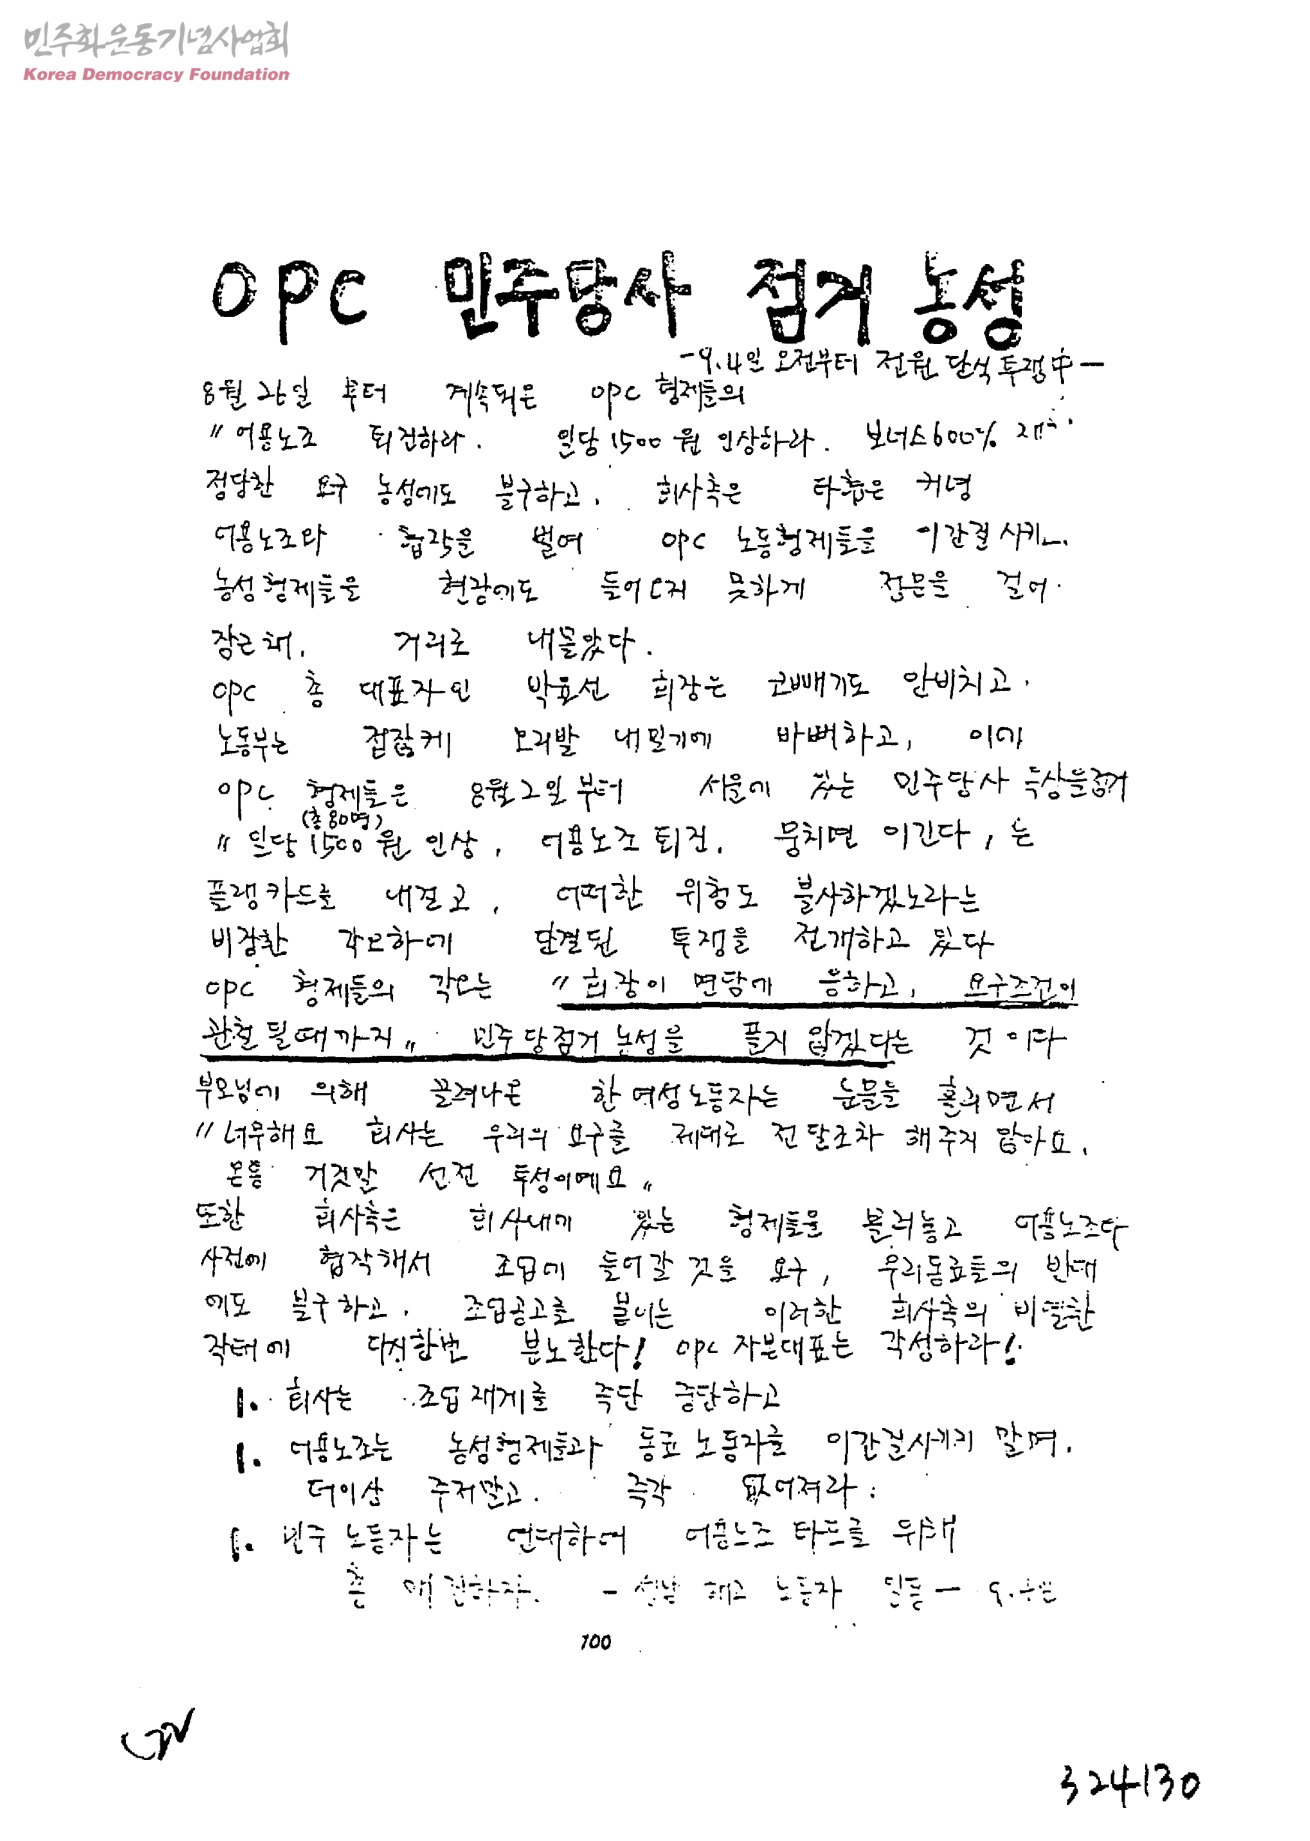 민주화운동기념사업회
Korea Democracy Foundation
OPC 민주당사 점거 농성
-9.4일 오전부터 전원 단식투쟁中-
8월 26일 부터 계속되온 OPC 형제들의
"어용노조 퇴진하라. 일당 1500원 인상하라. 보너스600%
정당한 요구 농성에도 불구하고, 회사측은 타협은 커녕
어용노조와 협작을 벌여 OPC 노동형제들을 이간질시키
농성형제들을 현장에도 들어오지 못하게 정문을 걸어
잠근채, 거리로 내몰았다.
OPC 총 대표자인 박효선 회장은 코빼기도 안비치고.
노동부는 점잖케 오리발 내밀기에 바뻐하고, 이에
OPC 형제들은 8월2일부터 서울에 있는 민주당사 옥상을점거
(총80명)
"일당 1500원 인상, 어용노조 퇴진, 뭉치면 이긴다, 는
플랭카드를 내걸고, 어떠한 위험도 불사하겠노라는
비장한 각오하에 단결된 투쟁을 전개하고 있다
OPC 형제들의 각오는 "회장이 면담에 응하고, 요구조건이
관철될때까지" 민주당점거 농성을 풀지 않겠다는 것이다
부모님에 의해 끌려나온 한 여성노동자는 눈물을 흘리면서
"너무해요 회사는 우리의 요구를 제대로 전달조차 해주지 않아요.
온통 거짓말 선전 투성이예요"
또한 회사측은 회사내에 있는 형제들을 불러놓고 어용노조와
사전에 협작해서 조업에 들어갈 것을 요구, 우리동료들의 반대
에도 불구하고, 조업공고를 붙이는 이러한 회사측의 비열한
작태에 다시한번 분노한다! OPC 자본대표는 각성하라!
1. 회사는 조업재게를 즉단 중단하고
1. 어용노조는 농성형제들과 동료 노동자를 이간질시키지 말며,
더이상 주저말고. 즉각 없어져라.
1. 민주 노동자는 연대하여 어용노조 타도를 위해
총 매진하자. - 성남 해고 노동자 일동 -
100
324130